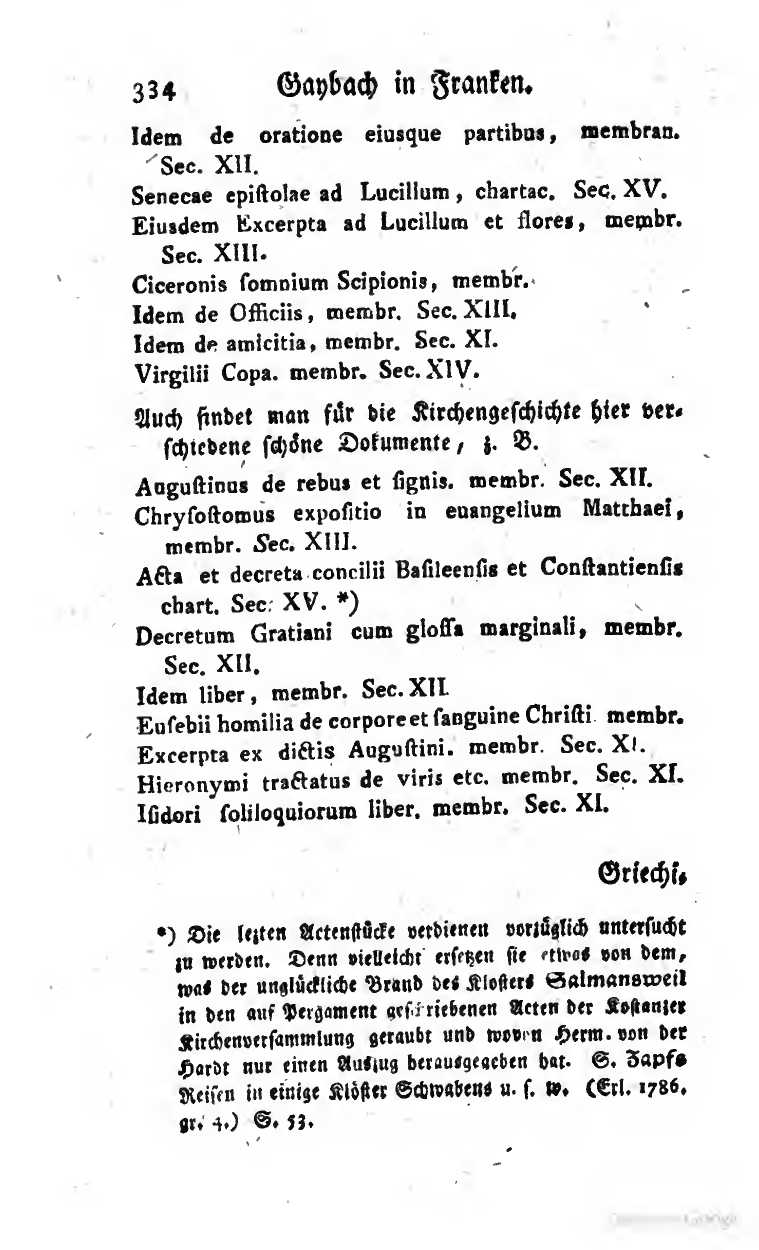 334 Gaybach in Franken.
Idem de oratione eiusque partibus, membran.
Sec. XII.
Senecae epiſtolae ad Lucillum, chartac. Sec. XV.
Eiusdem Excerpta ad Lucillum et flores, membr.
Sec. XIII.
Ciceronis ſomnium Scipionis, membr.
Idem de Officiis, membr. Sec. XIII.
Idem de amicitia, membr. Sec. XI.
Virgilii Copa. membr. Sec. XIV.
Auch findet man für die Kirchengeſchichte hier ver-
ſchiedene ſchöne Dokumente, z. B.
Auguſtinus de rebus et ſignis. membr. Sec. XII.
Chryſoſtomus expoſitio in euangelium Matthaei,
membr. Sec. XIII.
Acta et decreta concilii Baſileenſis et Conſtantienſis
chart. Sec. XV. *)
Decretum Gratiani cum gloſſa marginali, membr.
Sec. XII.
Idem liber, membr. Sec. XII
Euſebii homilia de corpore et ſanguine Chriſti membr.
Excerpta ex dictis Auguſtini. membr. Sec. XI.
Hieronymi tractatus de viris etc. membr. Sec. XI.
Iſidori ſoliloquiorum liber. membr. Sec. XI.
Griechi-
*) Die lezten Actenſtücke verdienen vorzüglich unterſucht
zu werden. Denn vielleicht erſetzen ſie etwas von dem,
was der unglückliche Brand des Kloſters Salmansweil
in den auf Pergament geſchriebenen Acten der Koſtanzer
Kirchenverſammlung geraubt und wovon Herm. von der
Hardt nur einen Auszug herausgegeben hat. S. Zapfs
Reiſen in einige Klöſter Schwabens u. ſ. w. (Erl. 1786.
gr. 4.) S. 53.